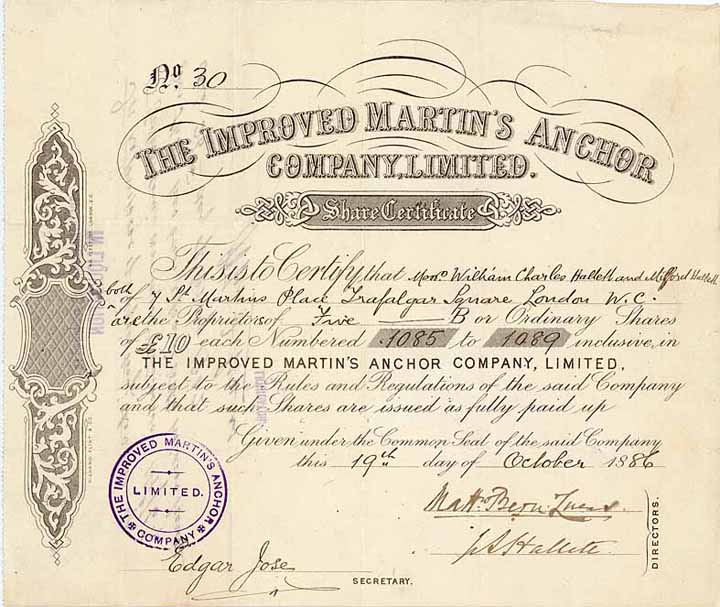 No. 30
THE IMPROVED MARTIN'S ANCHOR
COMPANY, LIMITED.
Share Certificate
This is to Certify, that Messrs William Charles Hallett and Milford Hallett
both of 7 St. Martins Place Trafalgar Square London W.C.
are the Proprietors of Five B or Ordinary Shares
of £10 each Numbered 1085 to 1089 inclusive, in
THE IMPROVED MARTIN'S ANCHOR COMPANY, LIMITED,
subject to the Rules and Regulations of the said Company
and that such Shares are issued as fully paid up
Given under the Common Seal of the said Company
this 19th day of October 1886
THE IMPROVED MARTIN'S ANCHOR
LIMITED.
COMPANY
Hallett
DIRECTORS.
Edgar Jose
SECRETARY.